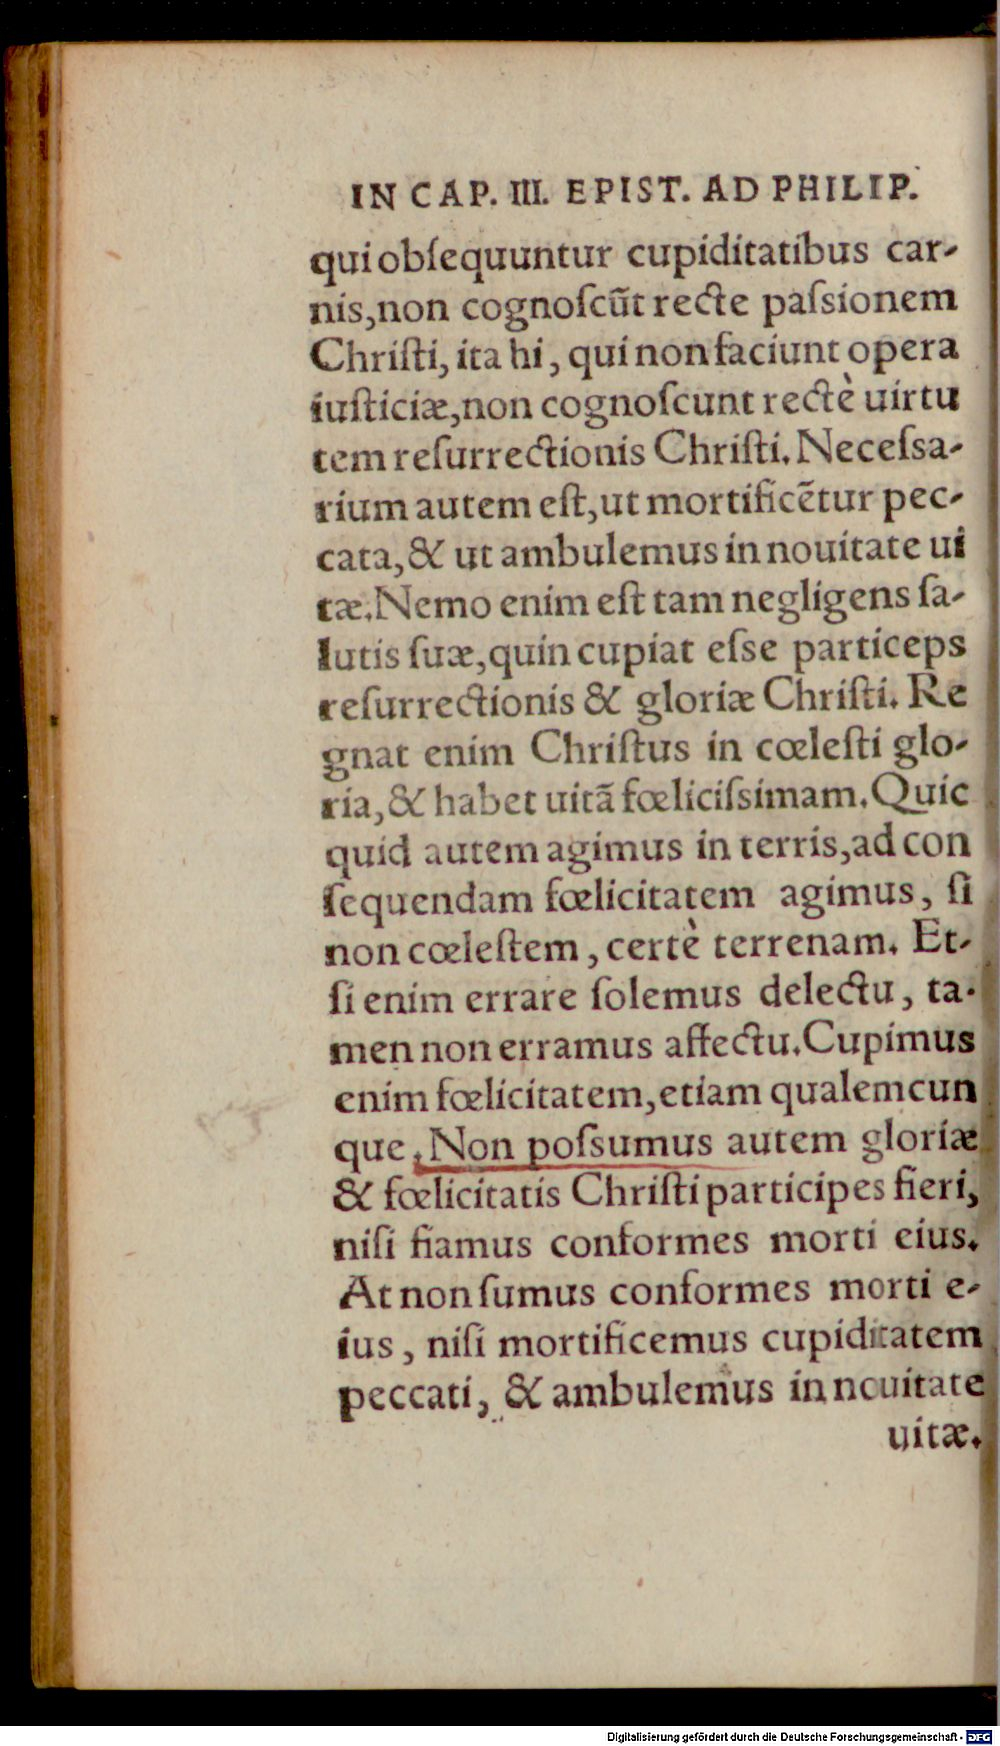 IN CAP. III. EPIST. AD PHILIP.
qui obſequuntur cupiditatibus car-
nis,non cognoſcũt recte paſsionem
Chriſti, ita hi, qui non faciunt opera
iuſticiæ,non cognoſcunt rectè uirtu
tem reſurrectionis Chriſti. Neceſsa-
rium autem eſt,ut mortificẽtur pec-
cata,& ut ambulemus in nouitate ui
tæ.Nemo enim eſt tam negligens ſa-
lutis ſuæ,quin cupiat eſse particeps
reſurrectionis & gloriæ Chriſti. Re
gnat enim Chriſtus in cœleſti glo-
ria,& habet uitã fœliciſsimam.Quic
quid autem agimus in terris,ad con
ſequendam fœlicitatem agimus, ſi
non cœleſtem, certè terrenam. Et-
ſi enim errare ſolemus delectu, ta-
men non erramus affectu.Cupimus
enim fœlicitatem,etiam qualemcun
que. Non poſsumus autem gloriæ
& fœlicitatis Chriſti participes fieri,
niſi fiamus conformes morti eius.
At non ſumus conformes morti e-
ius, niſi mortificemus cupiditatem
peccati, & ambulemus in nouitate
uitæ.
Digitalisierung gefördert durch die Deutsche Forschungsgemeinschaft - DFG